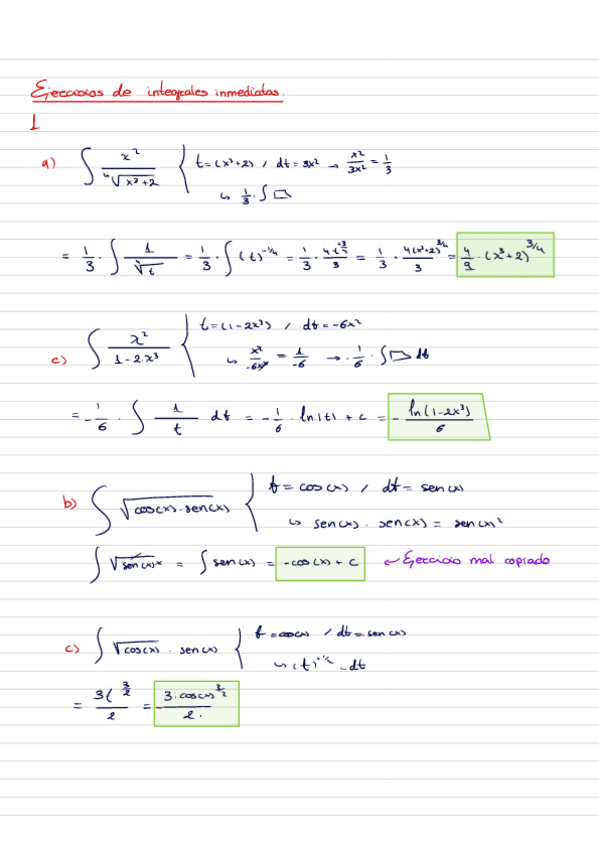 Ejercicios de integrales inmediatas.
1
a) ∫ x² / ⁴√(x³+2) { t = (x³+2) / dt = 3x² → x²/3x² = 1/3
↳ 1/3 · ∫ ▱
= 1/3 · ∫ 1/⁴√t = 1/3 · ∫ (t)^(-1/4) = 1/3 · 4t^(3/4)/3 = 1/3 · 4(x³+2)^(3/4)/3 = 4/9 · (x³+2)^(3/4)
c) ∫ x² / (1-2·x³) { t = (1-2x³) / dt = -6x²
↳ x²/-6x² = 1/-6 → -1/6 · ∫ ▱ dt
= -1/6 · ∫ 1/t dt = -1/6 · ln|t| + c = - ln(1-2x³)/6
b) ∫ √(cos(x)·sen(x)) { t = cos(x) / dt = sen(x)
↳ sen(x) · sen(x) = sen(x)²
∫ √(sen(x)²) = ∫ sen(x) = -cos(x) + c ← Ejercicio mal copiado
c) ∫ √cos(x) · sen(x) { t = cos(x) / dt = sen(x)
↳ (t) dt
= 3( ^(3/2) / 2 = 3·cos(x)^(3/2) / 2.